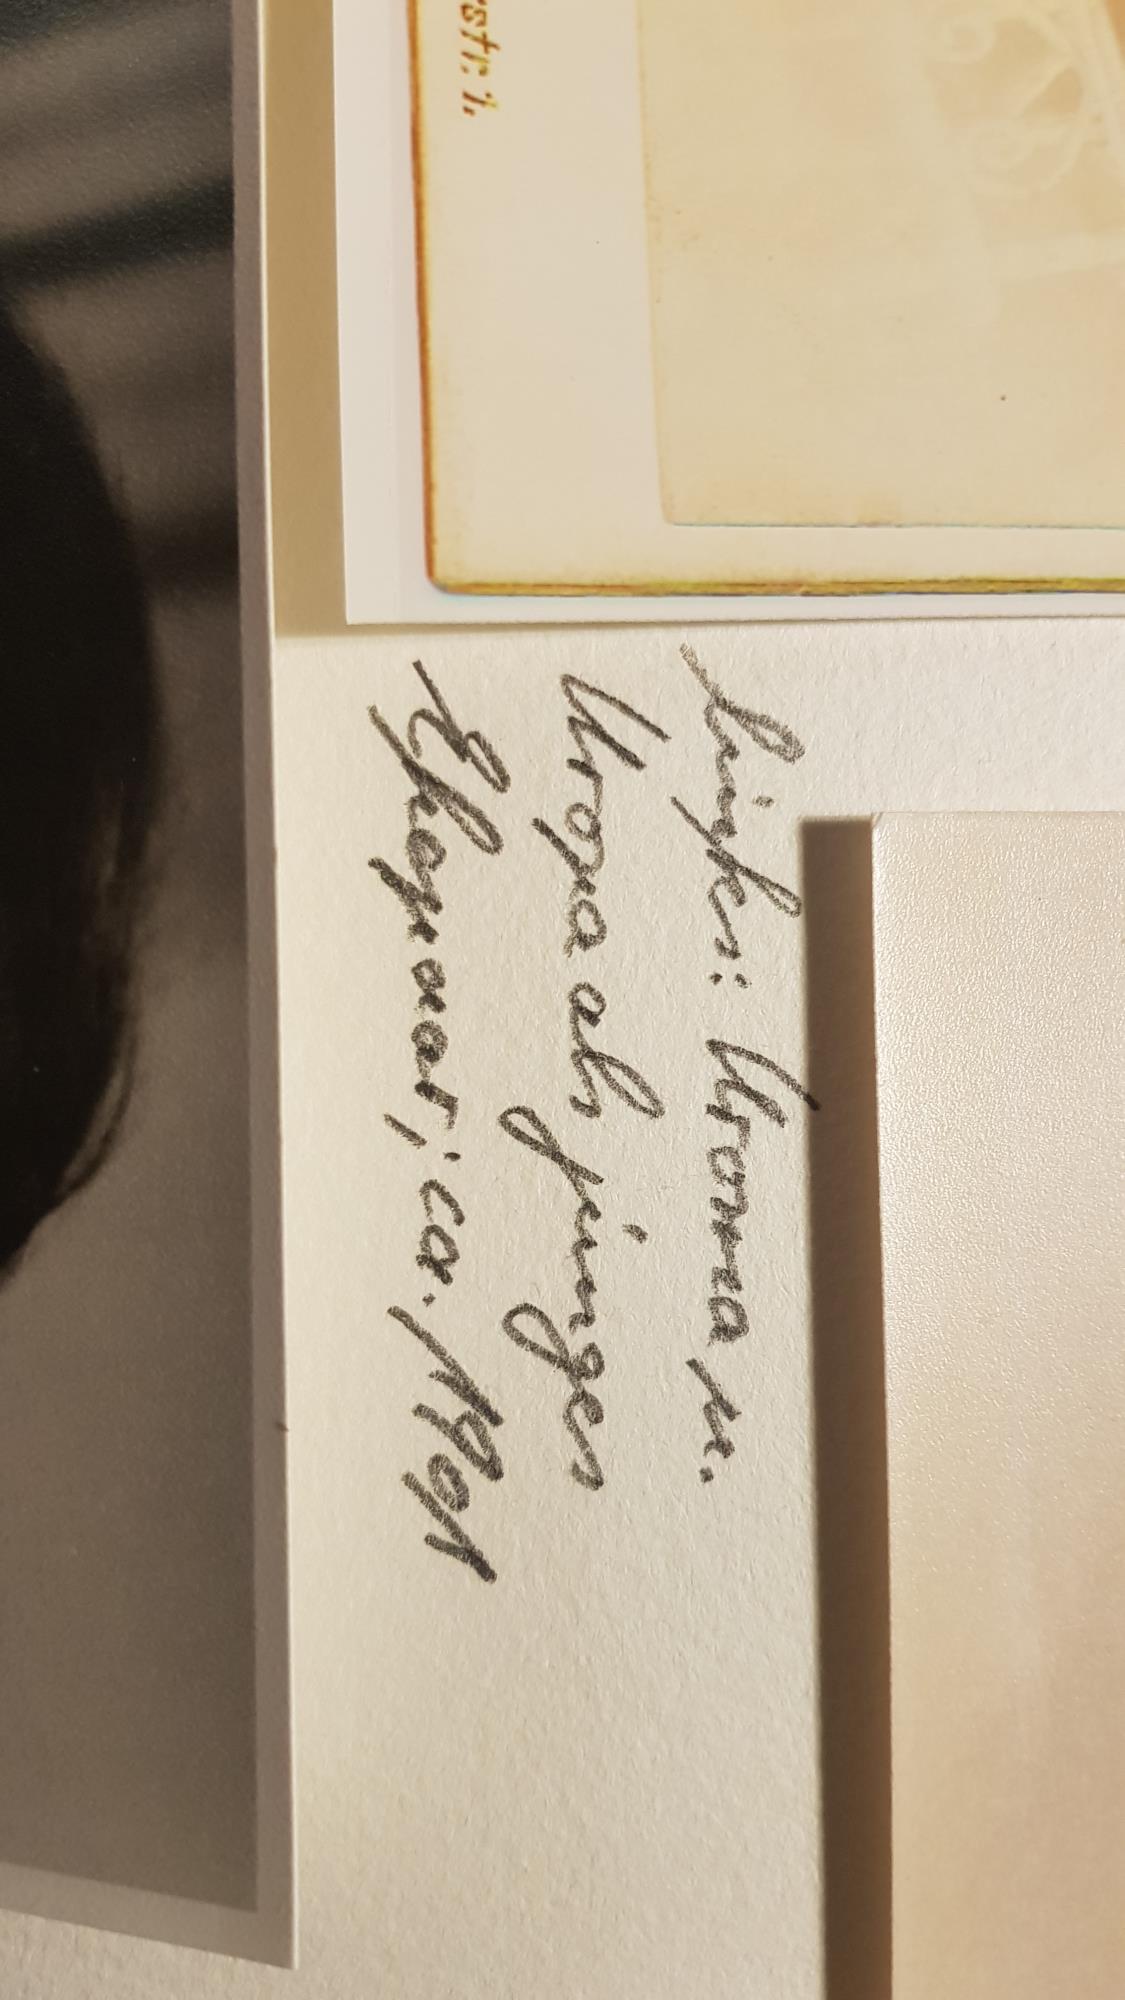 str. 1.
Links: Uroma u.
Uropa als junges
Ehepaar; ca. 1901